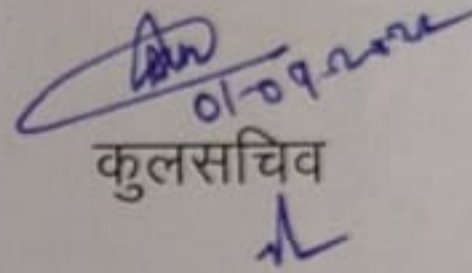 01-09-2022
कुलसचिव